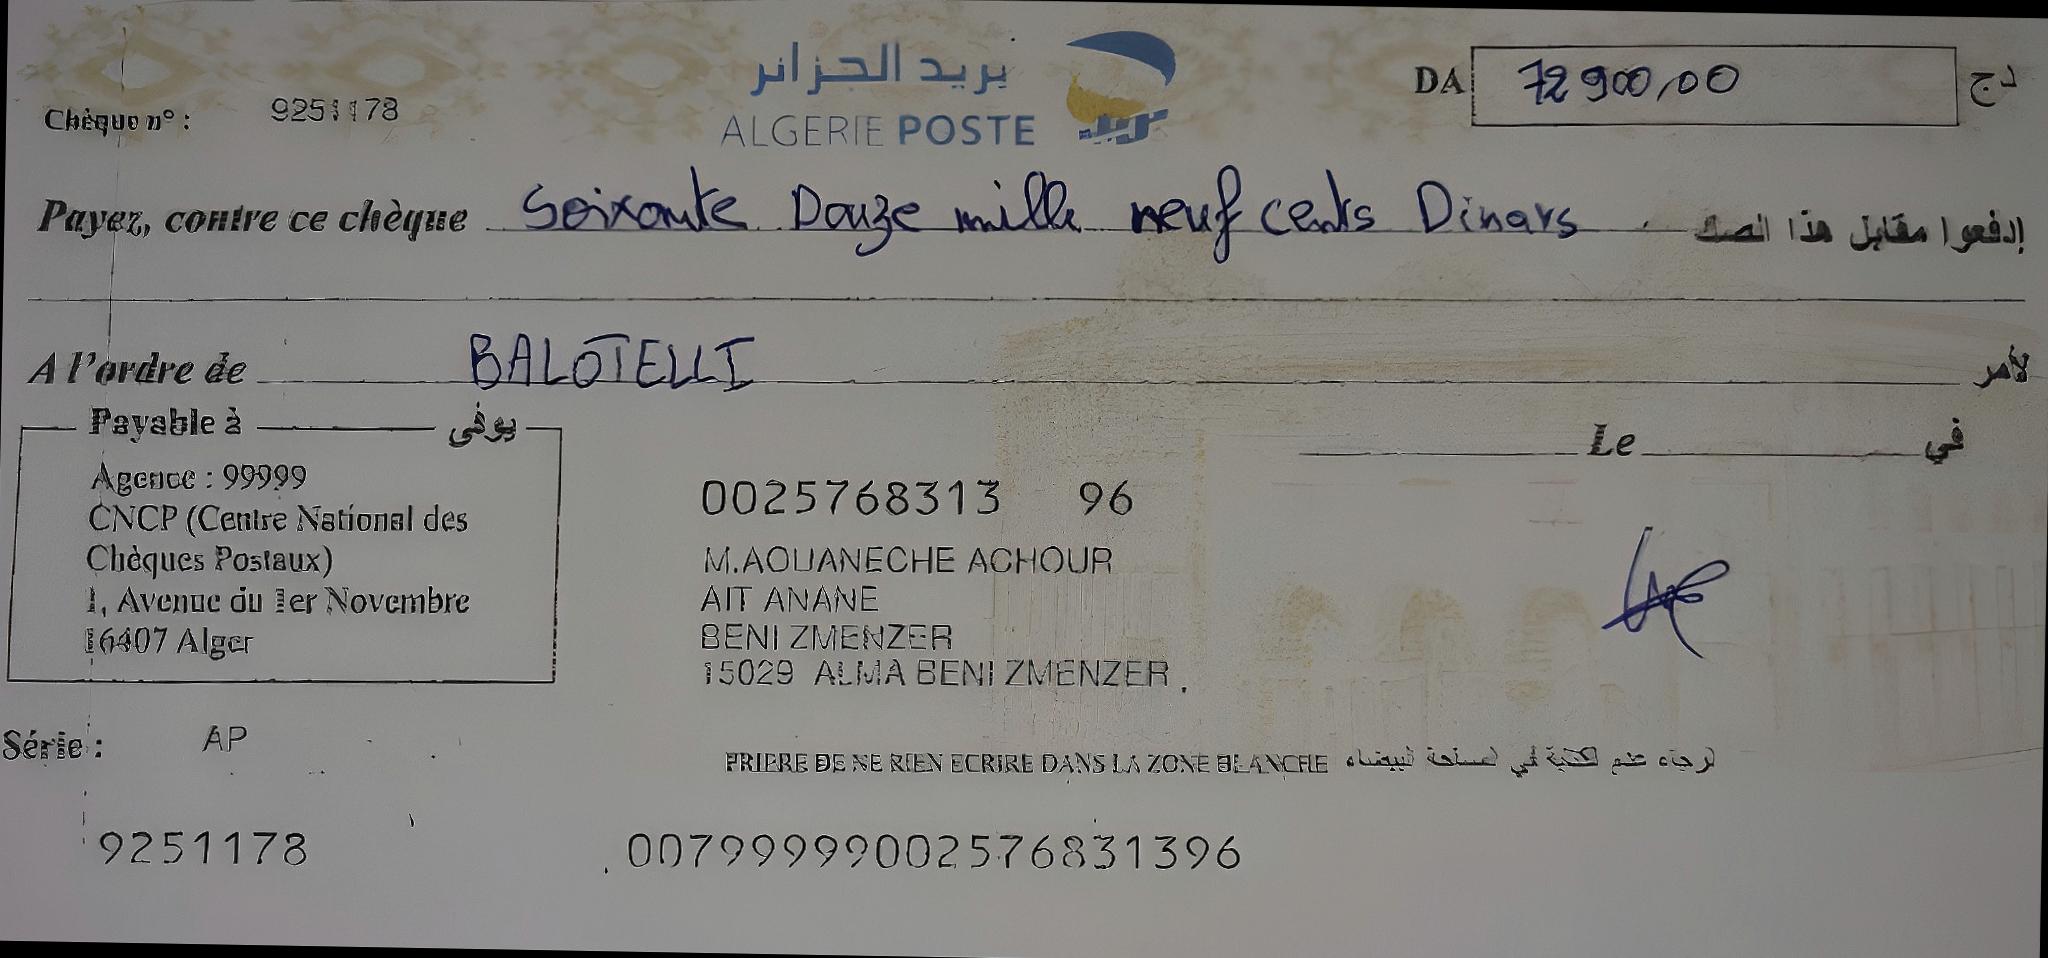 بريد الجزائر
ALGERIE POSTE
بريد
DA 72 900,00 دج
Chèque n° : 9251178
Payez, contre ce chèque Soixante Douze mille neuf cents Dinars إدفعوا مقابل هذا الصك
A l'ordre de BALOTELLI لأمر
Payable à يوفى
Le في
Agence : 99999
CNCP (Centre National des
Chèques Postaux)
1, Avenue du 1er Novembre
16407 Alger
0025768313 96
M.AOUANECHE ACHOUR
AIT ANANE
BENI ZMENZER
15029 ALMA BENI ZMENZER
Série : AP
PRIERE DE NE RIEN ECRIRE DANS LA ZONE BLANCHE
9251178 00799999002576831396